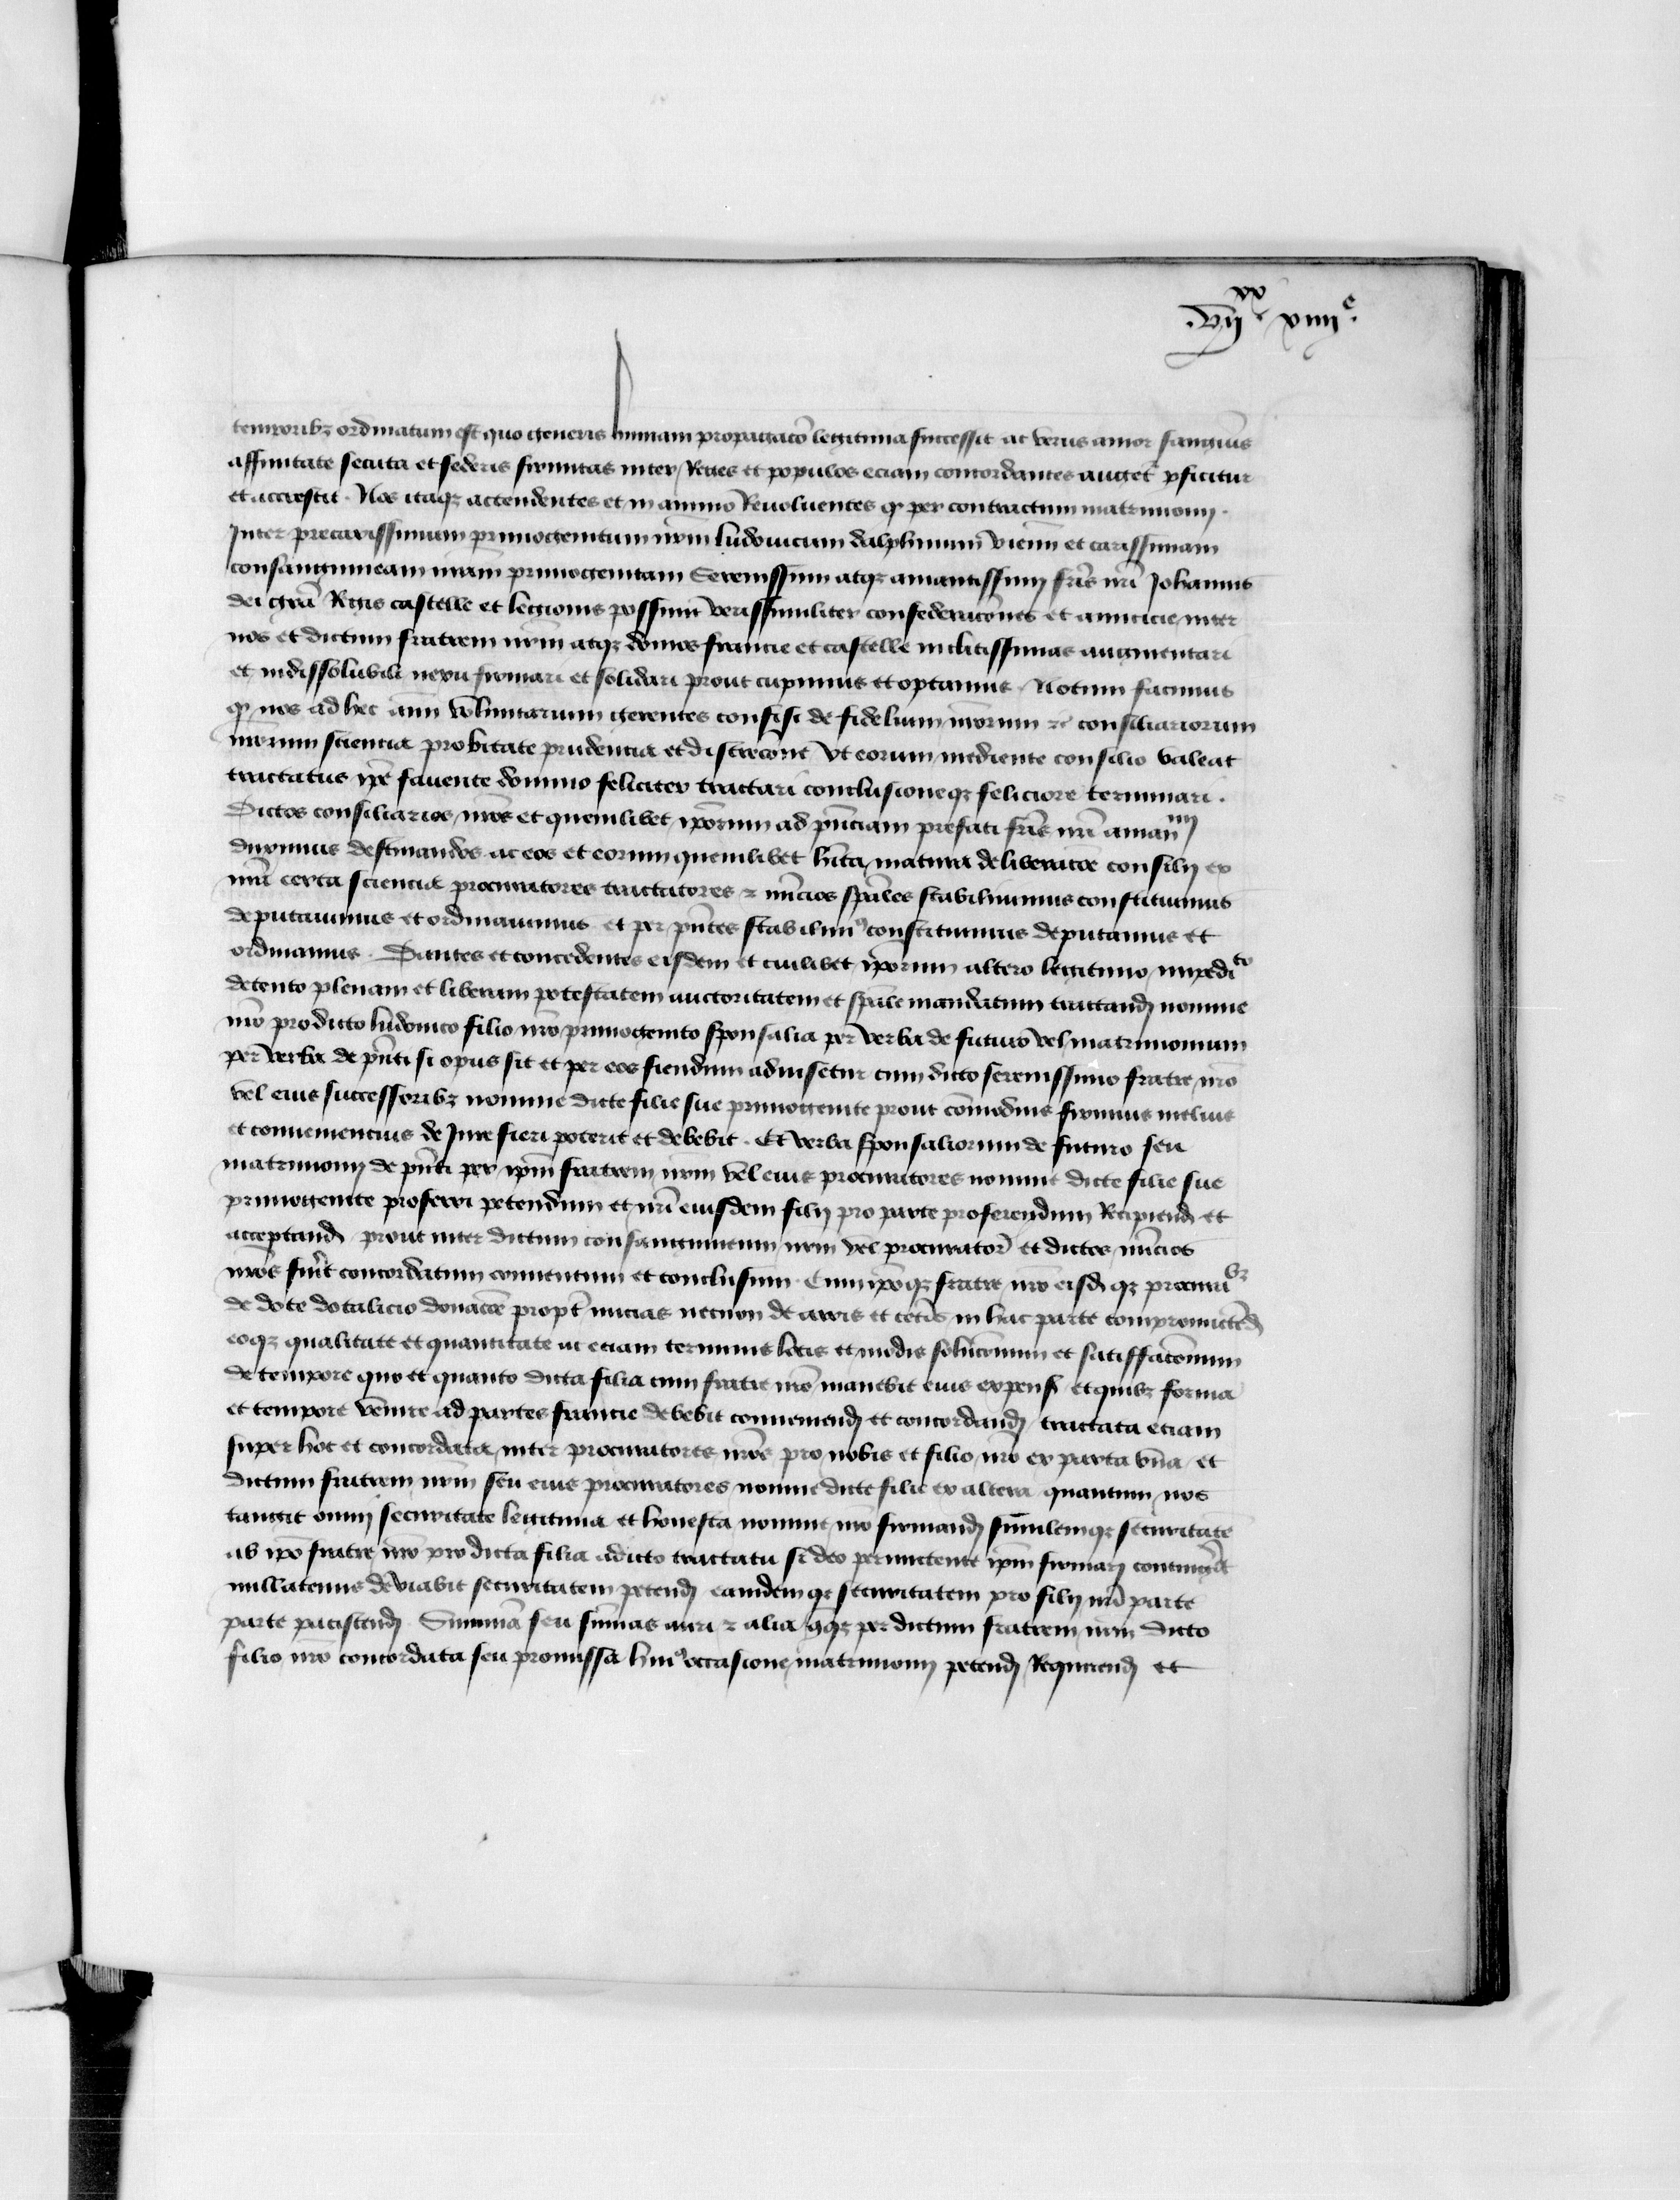 .vij.xx xiiije.
temporibz ordinatum est quo generis humani propagacō legitima successit ac verus amor sanguīs
affinitate secuta et federis firmitas inter Reges et populos eciam concordantes auget᷑ ꝑficitur
et accrescit. Nos itaqz actendentes et in animo Revoluentes qꝫ per contractum matrimonij.
Inter precarissimum primogenitum nrm̄ ludovicum dalphinum vienn̄ et carissimam
consanguineam nram̄ primogenitam Serenissimi atqz amantissimi fris̄ nrī Johannis
dei grā Regis castelle et legionis possunt verissimiliter confederacōnes et amicicie inter
nos et dictum fratrem nrm̄ atqz domos francie et castelle inclitissimas augmentari
et indissolubili nexu firmari et solidari prout cupimus et optamus. Notum facimus
qꝫ nos ad hec aīm voluntarium gerentes confisi de fidelium nrorum ⁊c̄ consiliariorum
nrorum sciencia probitate prudencia et discrecōne vt eorum mediente consilio valeat
tractatus ip̄e favente domino feliciter tractari conclusioneqz feliciore terminari.
Dictos consiliarios nros̄ et quemlibet ip̄orum ad pn̄ciam prefati fris̄ nrī amantᵐⁱ
duximus destinandos ac eos et eorum quemlibet hīta matura deliberacōe consilij ex
nrā certa sciencia procuratores tractatores ⁊ nūcios spāles stabilimimus constituimus
deputavimus et ordinavimus et per pn̄tes stabilimꝰ constituimus deputamus et
ordinamus. Dantes et concedentes eisdem et cuilibet ip̄orum altero legitimo impediᵗᵒ
detento plenam et liberam potestatem auctoritatem et spāle mandatum tractandj nomine
nrō pro dicto ludovico filio nrō primogenito sponsalia per verba de futuro vel matrimonium
per verba de pn̄ti si opus sit et per eos fiendum advisetur cum dicto serenissimo fratre nrō
vel eius successoribz nomine dicte filie sue primogenite prout cōmodius firmius melius
et conveniencius de Jure fieri poterit et debebit. Et verba sponsaliorum de futuro seu
matrimonij de pn̄ti per ip̄m fratrem nrm̄ vel eius procuratores nomine dicte filie sue
primogenite proferri petendum et nrī eiusdem filij pro parte proferendum Recipiendj et
acceptandj prout inter dictum consanguineum nrm̄ vel procuratorē et dictos nūcios
nros̄ fūit concordatum conventum et conclusum. Cum ip̄oqz fratre nrō eisdj qz procuraᵇᶻ
de dote dotalicio donacōe propt᷑ nucias necnon de arris et cet᷑is in hac parte compromictēdj
eoqz qualitate et quantitate ac eciam terminis locis et modis solucōnum et satisfacōnum
de tempore quo et quanto dicta filia cum fratre nrō manebit eius expensꝭ et quibz forma
et tempore venire ad partes francie debebit conveniendj et concordandj tractata eciam
super hoc et concordata inter procuratores nros̄ pro nobis et filio nrō ex parta vna et
dictum fratrem nrm̄ seu eius procuratores nomine dicte filie ex altera quantum nos
tangit omni securitate legitima et honesta nomine nrō firmandj similemqz securitatē
ab ip̄o fratre nrō pro dicta filia adicto tractatu si deo permictente ip̄m firmarj contingat
nullatenus deviabit securitatem petendj eamdem qz securitatem pro filij nrī parte
parte paciscendj Summā seu sūmas auri ⁊ alia qqz per dictum fratrem nrm̄ dicto
filio nrō concordata seu promissa huiꝰ occasione matrimonij petendj Requirendj et